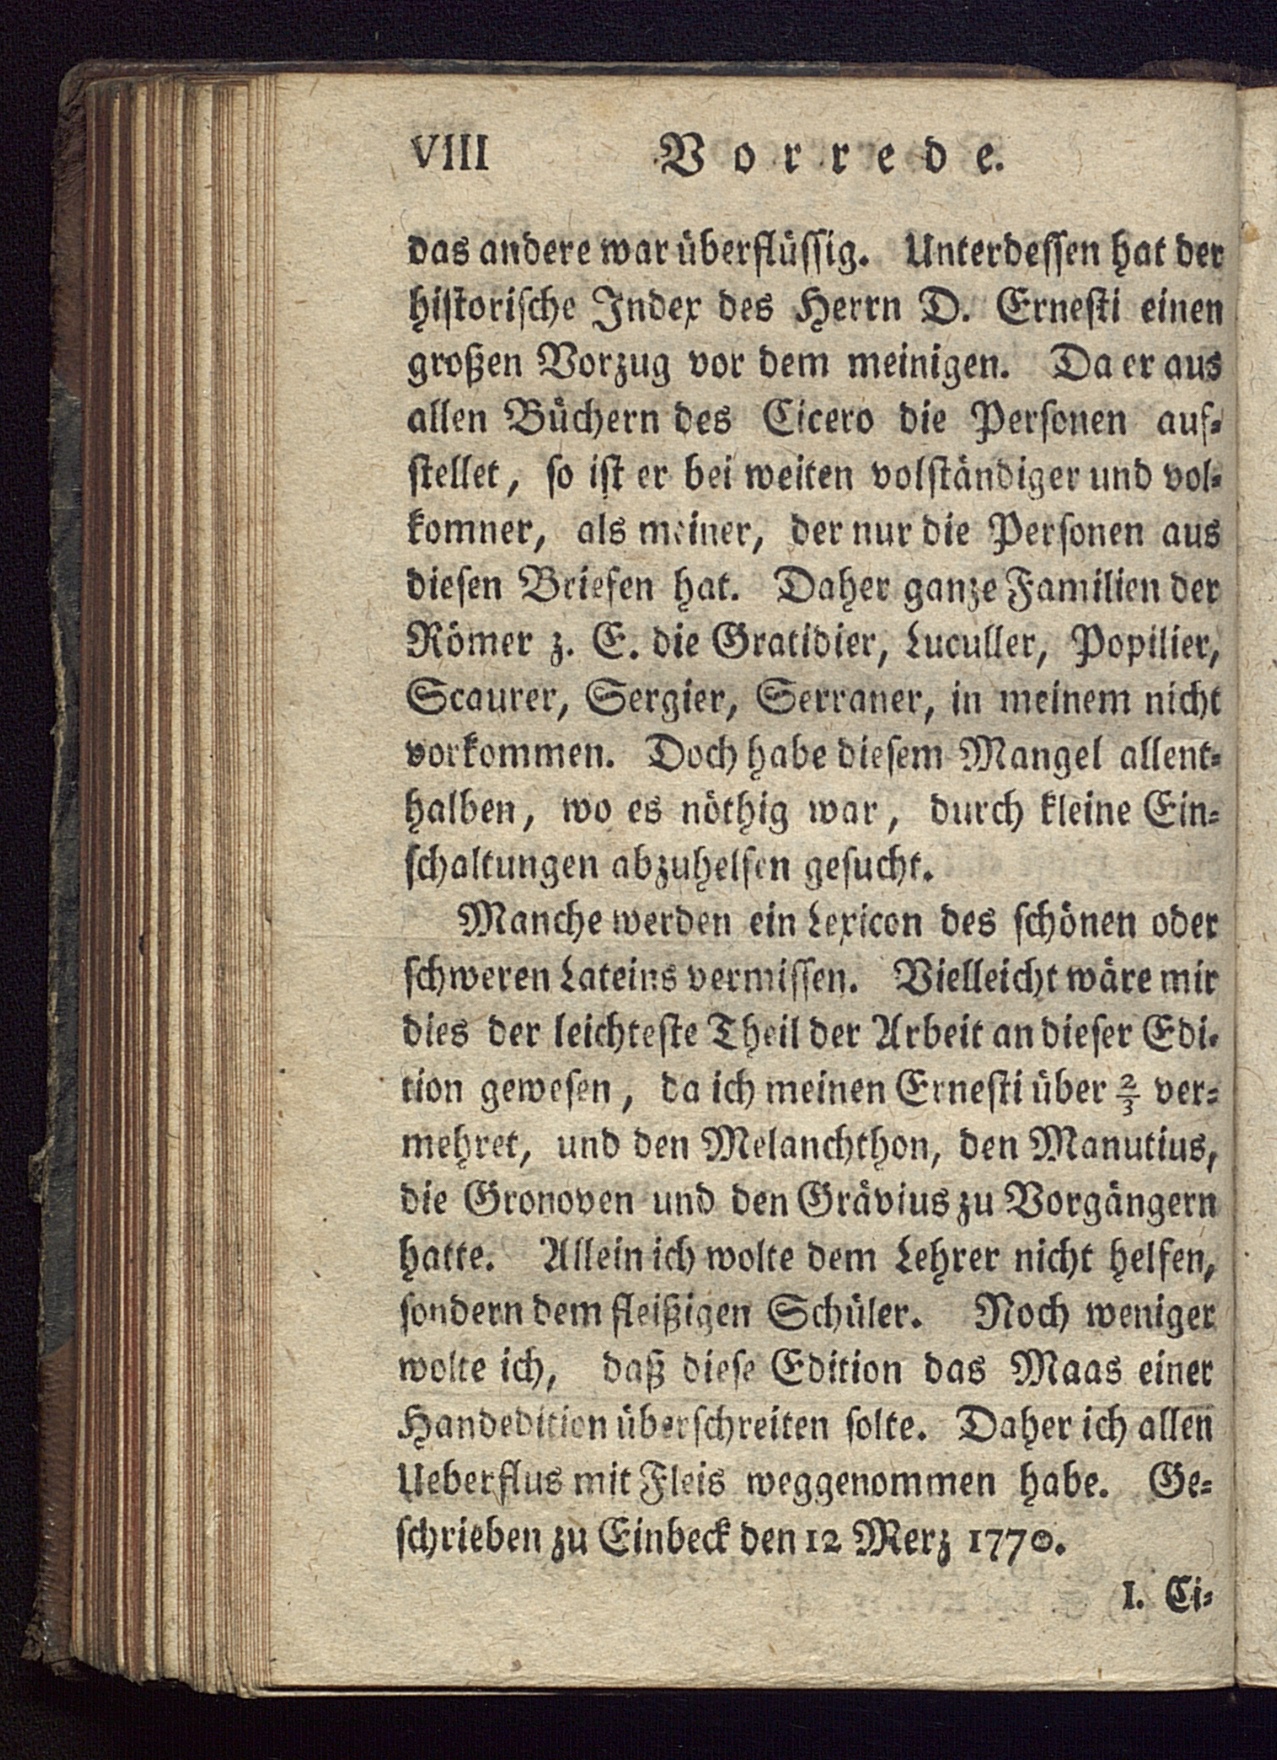 VIII Vorrede.
das andere war überflüssig. Unterdessen hat der
historische Index des Herrn D. Ernesti einen
großen Vorzug vor dem meinigen. Da er aus
allen Büchern des Cicero die Personen auf-
stellet, so ist er bei weiten volständiger und vol-
komner, als meiner, der nur die Personen aus
diesen Briefen hat. Daher ganze Familien der
Römer z. E. die Gratidier, Luculler, Popilier,
Scaurer, Sergier, Serraner, in meinem nicht
vorkommen. Doch habe diesem Mangel allent-
halben, wo es nöthig war, durch kleine Ein-
schaltungen abzuhelfen gesucht.
Manche werden ein Lexicon des schönen oder
schweren Lateins vermissen. Vielleicht wäre mir
dies der leichteste Theil der Arbeit an dieser Edi-
tion gewesen, da ich meinen Ernesti über 2/3 ver-
mehret, und den Melanchthon, den Manutius,
die Gronoven und den Grävius zu Vorgängern
hatte. Allein ich wolte dem Lehrer nicht helfen,
sondern dem fleißigen Schüler. Noch weniger
wolte ich, daß diese Edition das Maas einer
Handedition überschreiten solte. Daher ich allen
Ueberflus mit Fleis weggenommen habe. Ge-
schrieben zu Einbeck den 12 Merz 1770.
I. Ci-